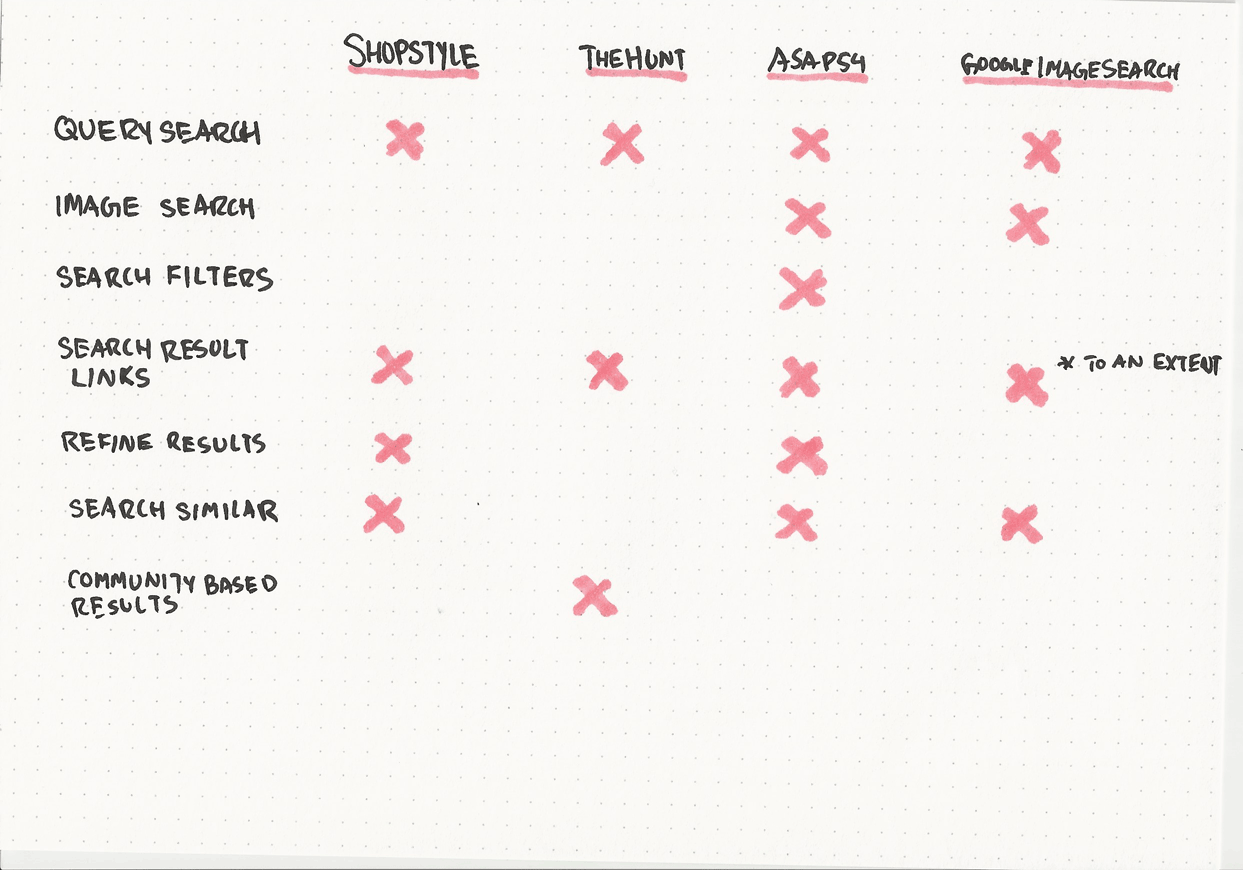 SHOPSTYLE THEHUNT ASAPS4 GOOGLE IMAGE SEARCH
QUERY SEARCH
IMAGE SEARCH
SEARCH FILTERS
SEARCH RESULT
LINKS
* TO AN EXTENT
REFINE RESULTS
SEARCH SIMILAR
COMMUNITY BASED
RESULTS